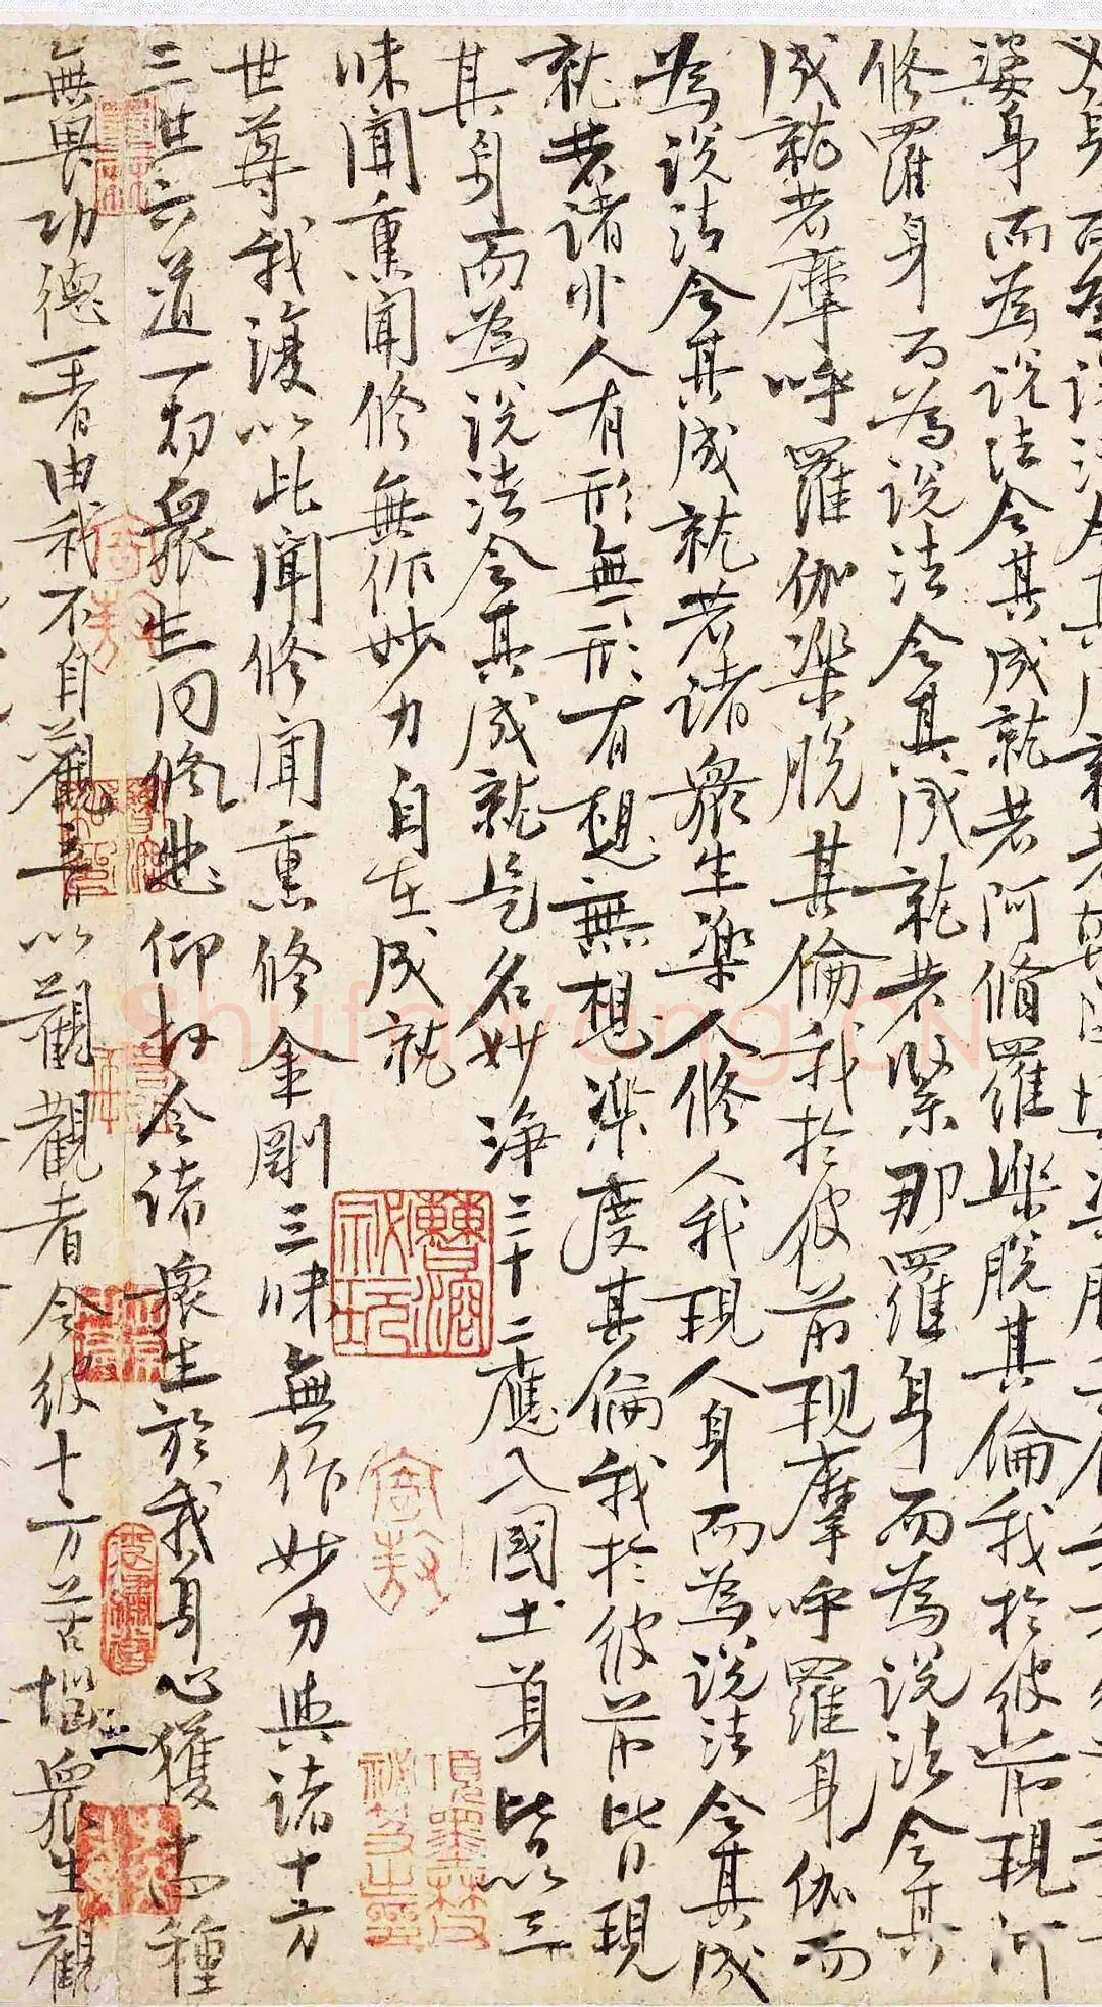 叉身而為說法令其成就若
婆身而為說法令其成就若阿脩羅樂脫其倫我於彼前現阿
修羅身而為說法令其成就若緊那羅身而為說法令其
成就若摩呼羅伽樂脫其倫我於彼前現摩呼羅身伽而
為說法令其成就若諸衆生樂人修人我現人身而為說法令其成
就若諸非人有形無形有想無想樂度其倫我於彼前皆現
其身而為說法令其成就是名妙淨三十二應入國土身皆以三
昧聞熏聞修無作妙力自在成就
世尊我復以此聞修聞熏修金剛三昧無作妙力與諸十方
三世六道一切衆生同修悲仰故令諸衆生於我身心獲十四種
無畏功德一者由我不自觀音以觀觀者令彼十方苦惱衆生觀
曹溶秘玩
項墨林父秘笈之印
shufawang.CN